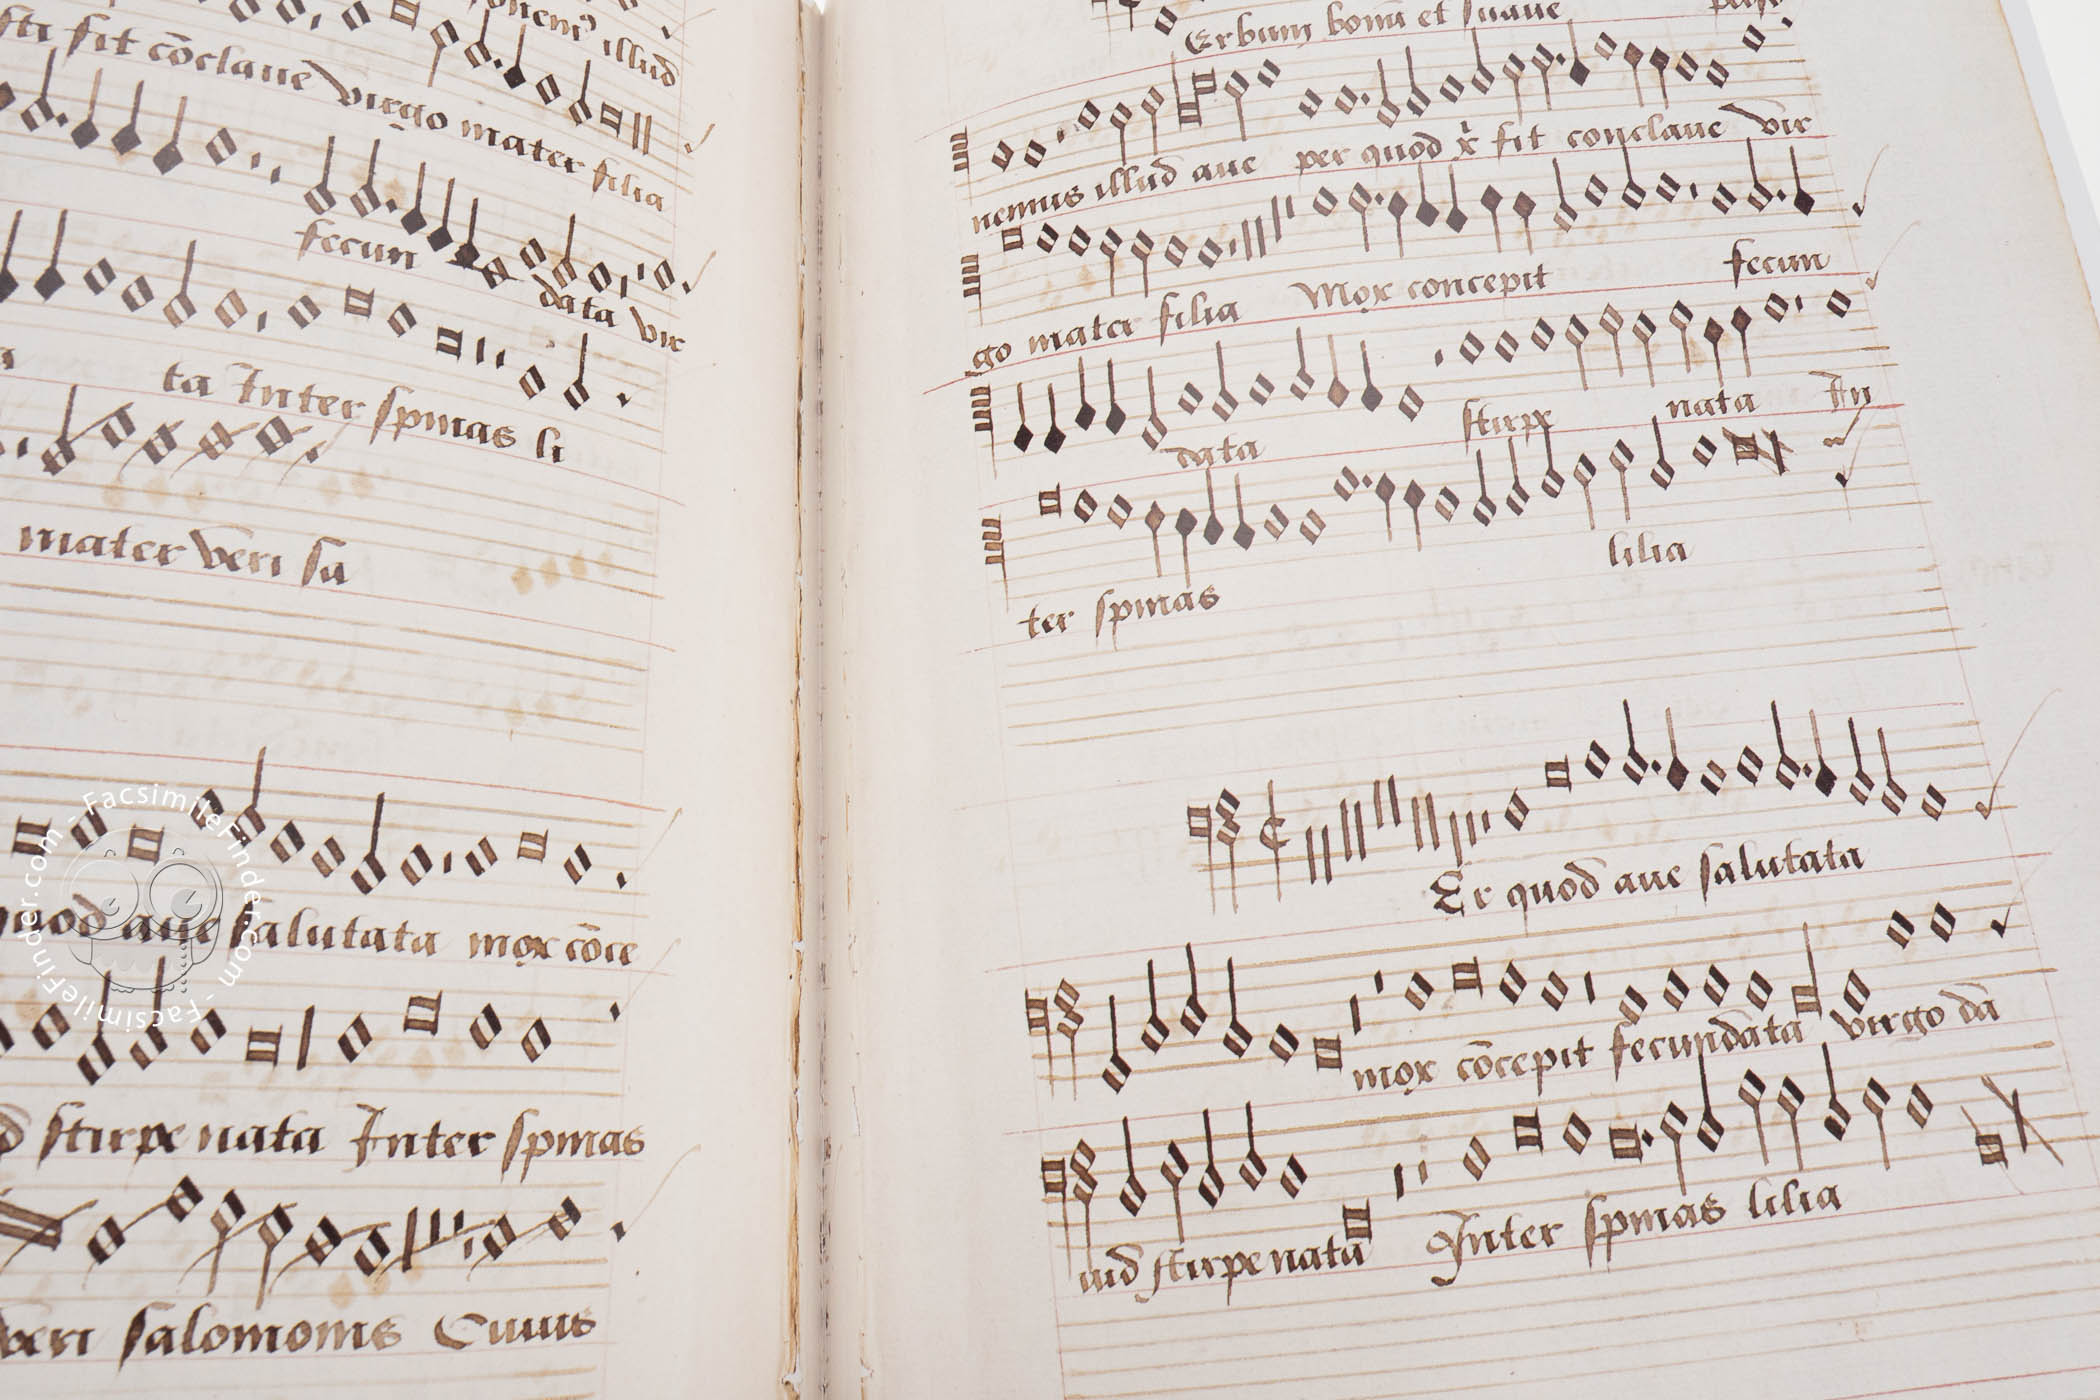 illud
sti fit cōclave virgo mater filia
fecun data vir
ta Inter spinas li
mater veri sa
quod ave salutata mox cōce
d stirpe nata Inter spinas
veri salomonis Cuius
Erbum bonū et suave
nemus illud ave per quod x̄ fit conclave vir
go mater filia Mox concepit fecun
data stirpe nata In
ter spinas lilia
Er quod ave salutata
mox cōcepit fecundata virgo dā
uid stirpe nata Inter spinas lilia
FacsimileFinder.com - FacsimileFinder.com -